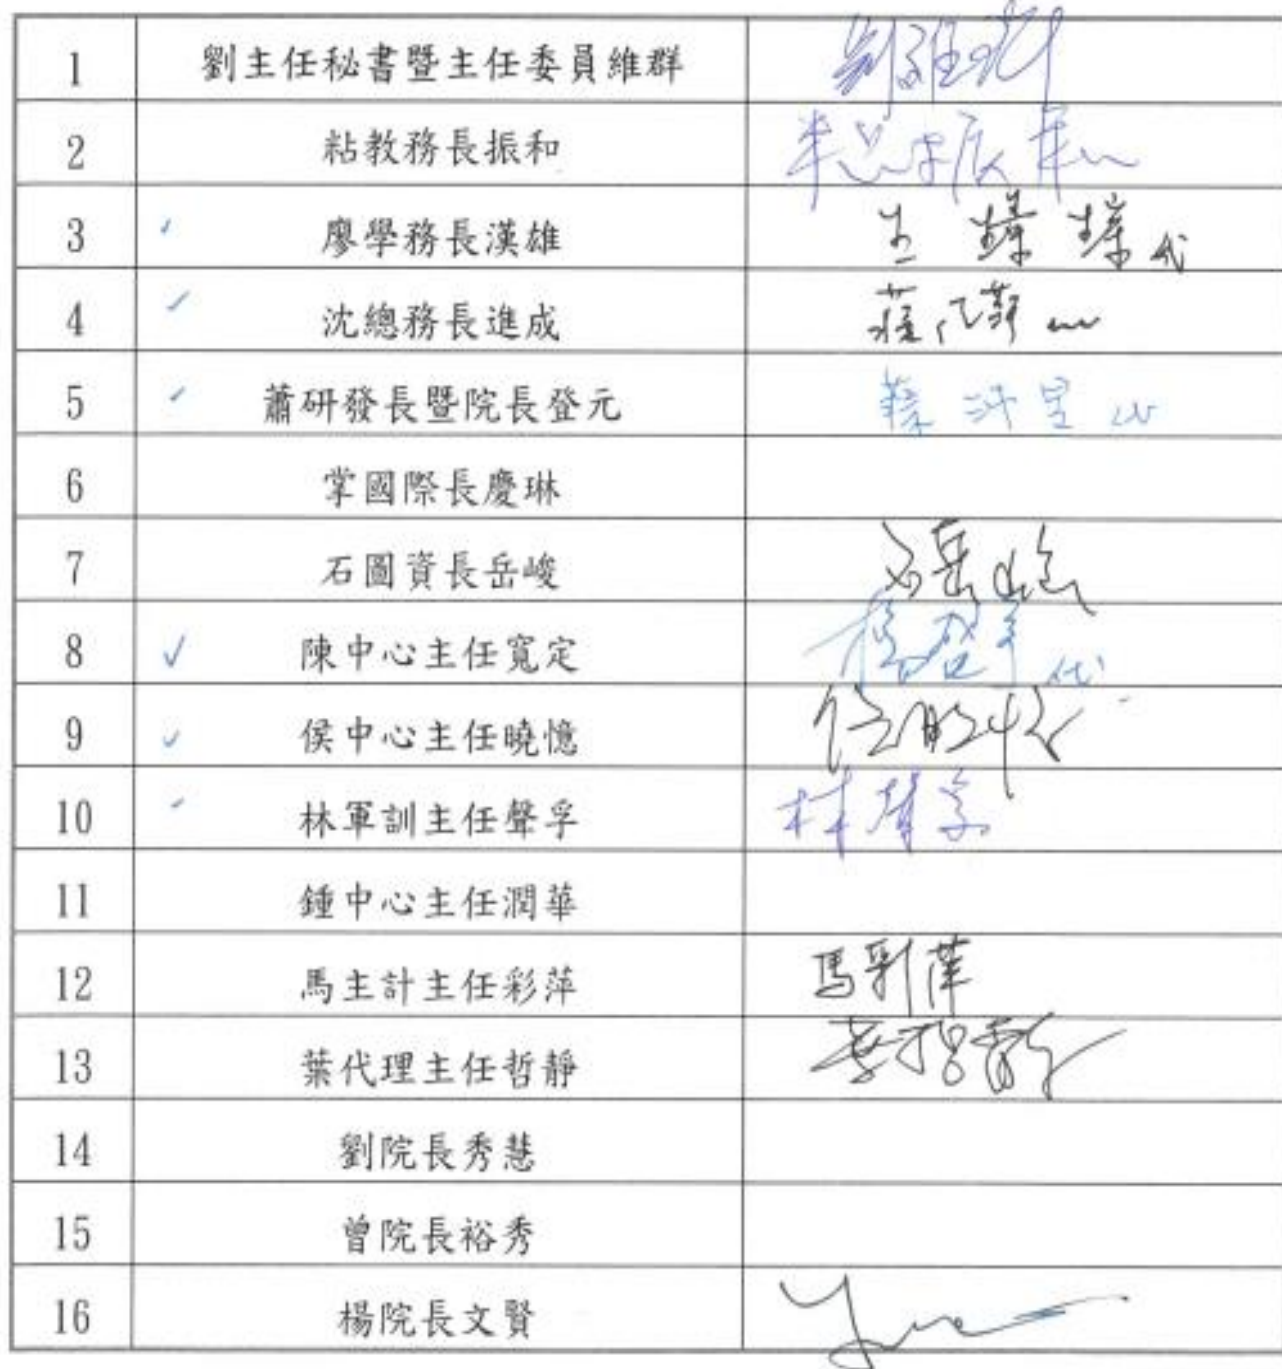 1 劉主任秘書暨主任委員維群 劉維群
2 粘教務長振和 粘振和
3 廖學務長漢雄 代
4 沈總務長進成
5 蕭研發長暨院長登元
6 掌國際長慶琳
7 石圖資長岳峻 石岳峻
8 陳中心主任寬定 代
9 侯中心主任曉憶
10 林軍訓主任聲孚 林聲孚
11 鍾中心主任潤華
12 馬主計主任彩萍 馬彩萍
13 葉代理主任哲靜 葉哲靜
14 劉院長秀慧
15 曾院長裕秀
16 楊院長文賢